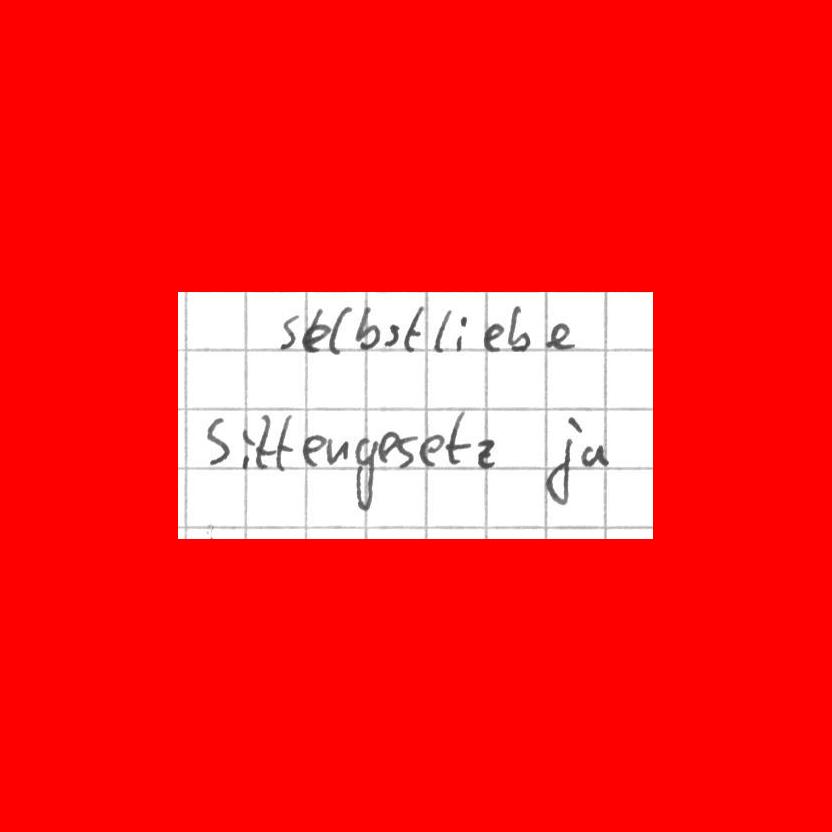 selbstliebe
Sittengesetz ja